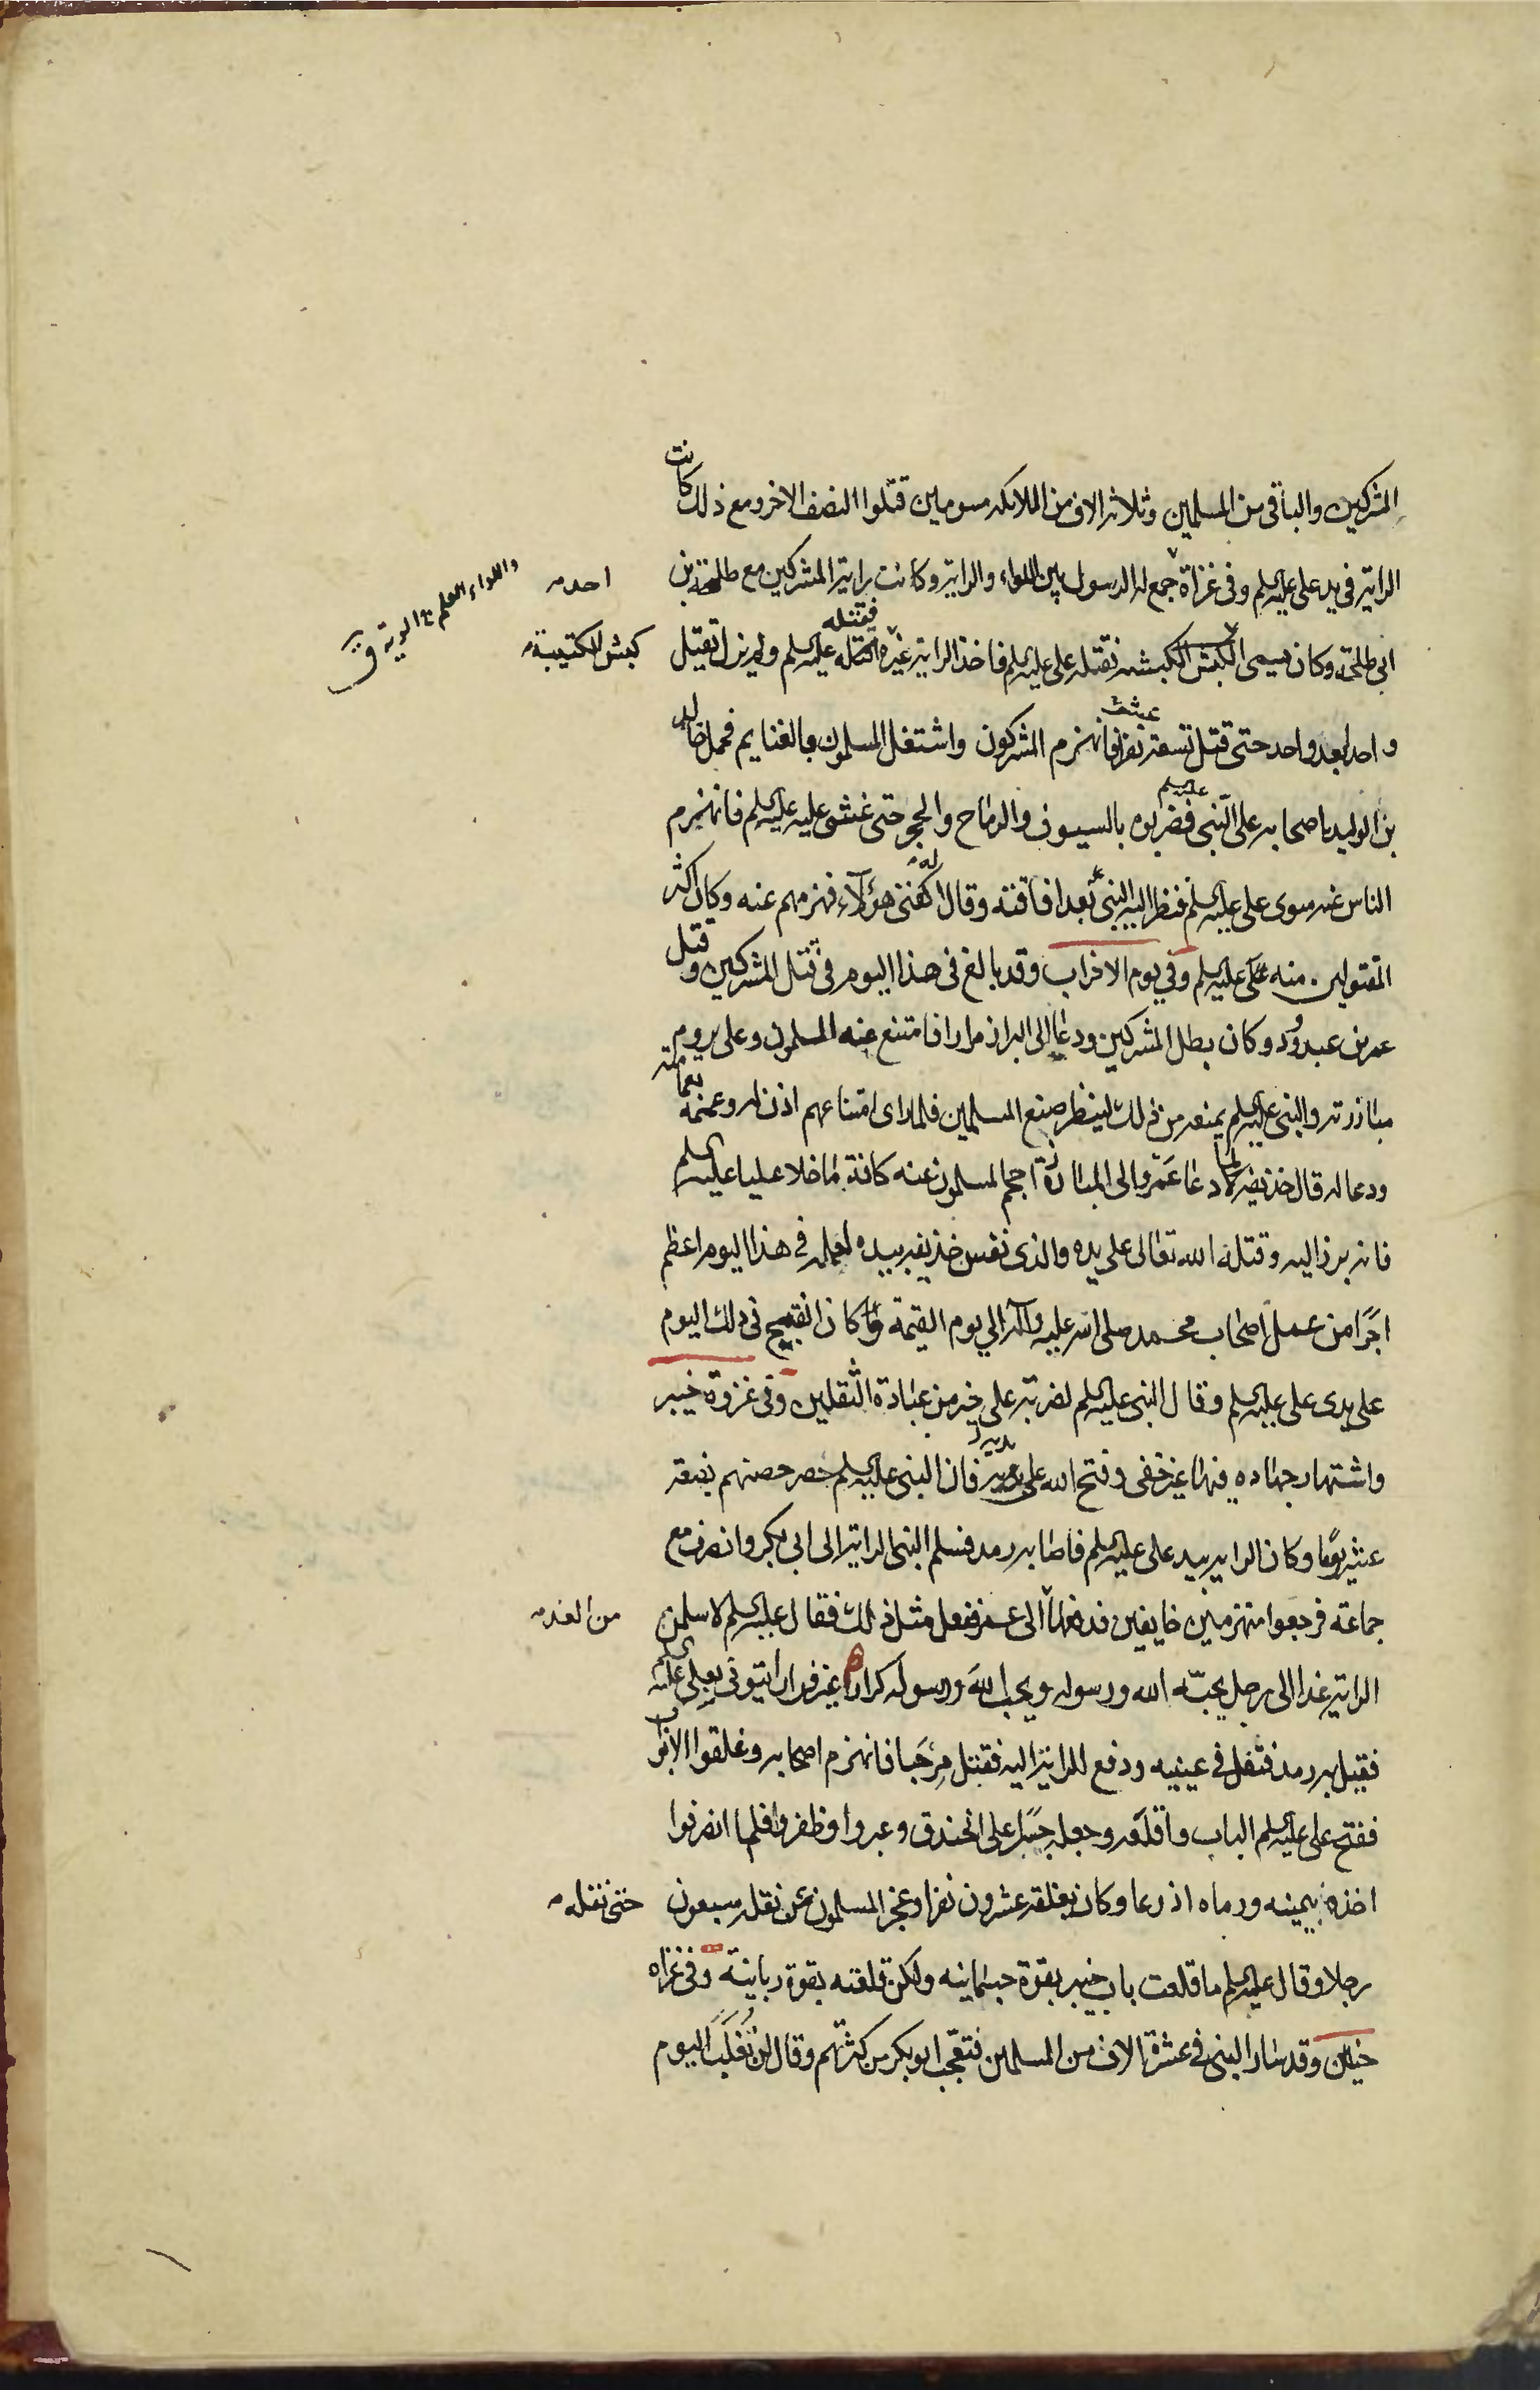 المشركين والباقى من المسلمين وثلاثة الاف من الملائكه مسومين قتلوا النصف الاخر ومع ذلك كانت
الراية فى يد على عليه السلم وفى غزاة جمع له الرسول بين اللواء والراية وكانت راية المشركين مع طلحة بن
احد
واللواء العلم ج الوية ق
ابى طلحة وكان يسمى الكبش الكبشه فقتله على عليه السلم فاخذ الراية غيره فقتله عليه السلم ولم يزل يقتل
كبش الكتيبة
واحدا بعد واحد حتى قتل تسعة نفر فانهزم المشركون واشتغل المسلمون بالغنايم فحمل خالد
بن الوليد باصحابه على النبى عليه السلم فضربوه بالسيوف والرماح والحجر حتى غشى عليه عليه السلم فانهزم
الناس عنه سوى على عليه السلم فنظر اليه النبى بعد افاقته وقال له اكفنى هؤلاء فهزمهم عنه وكان اكثر
المقتولين منه على عليه السلم وفي يوم الاحزاب وقد بالغ فى هذا اليوم فى قتل المشركين وقتل
عمر بن عبدود وكان بطل المشركين ودعا الى البراز مرارا فامتنع عنه المسلمون وعلى يروم
مبارزته والنبى عليه السلم يمنعه من ذلك لينظر صنع المسلمين فلما راى امتناعهم اذن له وعممه بعمامته
ودعا له قال حذيفه لما دعا عمرو الى المبارزة احجم المسلمون عنه كافة ما خلا عليا عليه السلم
فانه برز اليه وقتله الله تعالى على يده والذى نفس حذيفه بيده لعمله فى هذا اليوم اعظم
اجرا من عمل اصحاب محمد صلى الله عليه وآله الي يوم القيمة وكان الفتح فى ذلك اليوم
على يدى على عليه السلم وقال النبى عليه السلم لضربة على خير من عبادة الثقلين وفى غزوة خيبر
واشتهار جهاده فيها غير خفى وفتح الله على يديه فان النبى عليه السلم حصر حصنهم بضعة
عشر يوما وكان الراية بيد على عليه السلم فاصابه رمد فسلم النبى الراية الى ابى بكر وانصرف مع
جماعة فرجعوا منهزمين خايفين فدفعها الى عمر ففعل مثل ذلك فقال عليه السلم لاسلمن
من الغد
الراية غدا الى رجل يحبه الله ورسوله ويحب الله ورسوله كرارا غير فرار ائتونى بعلى
فقيل به رمد فتفل فى عينيه ودفع الراية اليه فقتل مرحبا فانهزم اصحابه وغلقوا الابواب
ففتح على عليه السلم الباب واقلعه وجعله جسرا على الخندق وعبروا وظفروا فلما انصرفوا
اخذه بيمينه ورماه اذرعا وكان يغلقه عشرون نفرا وعجز المسلمون عن نقله سبعون
حتى نقله
رجلا وقال عليه السلم ما قلعت باب خيبر بقوة جسمانيه ولكن قلعته بقوة ربانية وفى غزاه
حنين وقد سار النبى فى عشرة الاف من المسلمين فتعجب ابو بكر من كثرتهم وقال لن نغلب اليوم